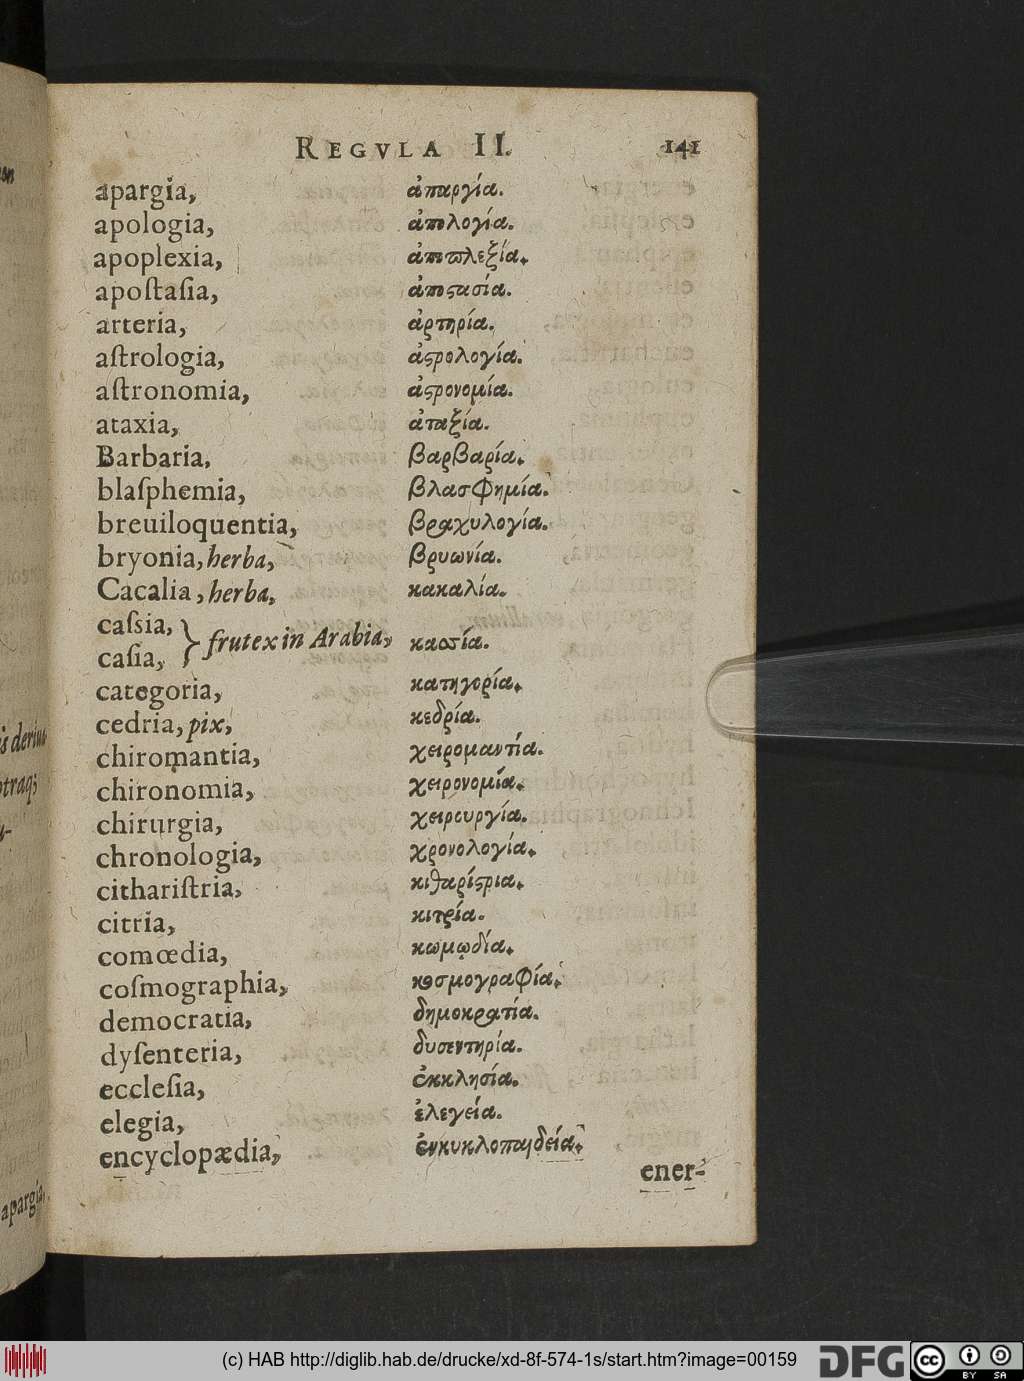 REGVLA II. 141
apargia, ἀπαργία.
apologia, ἀπολογία.
apoplexia, ἀποπλεξία.
apoſtaſia, ἀποϛασία.
arteria, ἀρτηρία.
aſtrologia, ἀϛρολογία.
aſtronomia, ἀϛρονομία.
ataxia, ἀταξία.
Barbaria, βαρβαρία.
blaſphemia, βλασφημία.
breuiloquentia, βραχυλογία.
bryonia, herba, βρυωνία.
Cacalia, herba, κακαλία.
caſsia,
caſia, } frutex in Arabia, κασσία.
categoria, κατηγορία.
cedria, pix, κεδρία.
chiromantia, χειρομαντία.
chironomia, χειρονομία.
chirurgia, χειρουργία.
chronologia, χρονολογία.
cithariſtria, κιθαρίϛρια.
citria, κιτρία.
comœdia, κωμῳδία.
coſmographia, κοσμογραφία.
democratia, δημοκρατία.
dyſenteria, δυσεντηρία.
eccleſia, ἐκκλησία.
elegia, ἐλεγεία.
encyclopædia, ἐνκυκλοπαιδεία.
ener-
apargia,
(c) HAB http://diglib.hab.de/drucke/xd-8f-574-1s/start.htm?image=00159
DFG
cc BY SA